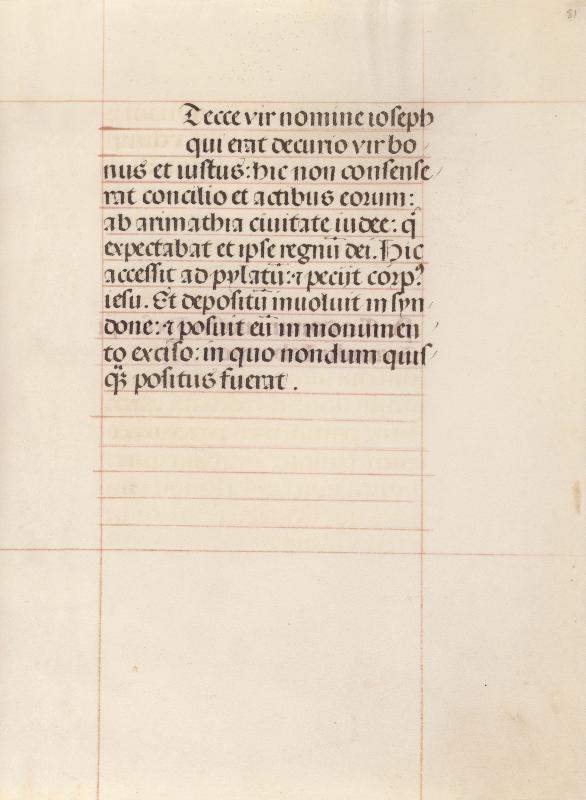 81
T ecce vir nomine ioseph
qui erat decurio vir bo
nus et iustus: hic non consense
rat concilio et actibus eorum:
ab arimathia ciuitate iudee: q̃
expectabat et ipse regnũ dei. Hic
accessit ad pylatũ: ⁊ pecijt corpꝰ
iesu. Et depositũ inuoluit in syn
done: ⁊ posuit eũ in monumen
to exciso: in quo nondum quis
q̃ꝫ positus fuerat.